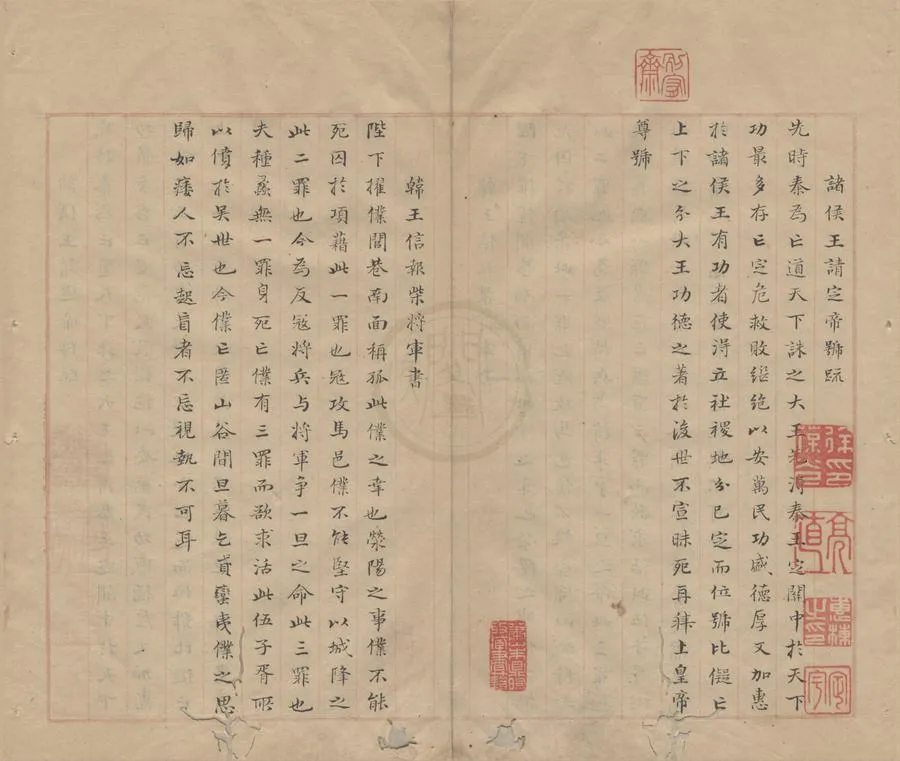 諸侯王請定帝號疏
先時秦為亡道天下誅之大王先得秦王定關中於天下
功最多存亡定危救敗繼絕以安萬民功盛德厚又加惠
於諸侯王有功者使得立社稷地分已定而位號比儗亡
上下之分大王功德之著於後世不宣昧死再拜上皇帝
尊號
韓王信報柴將軍書
陛下擢僕閭巷南面稱孤此僕之幸也滎陽之事僕不能
死囚於項藉此一罪也冦攻馬邑僕不能堅守以城降之
此二罪也今為反冦將兵与將軍爭一旦之命此三罪也
夫種蠡無一罪身死亡僕有三罪而欲求活此伍子胥所
以僨於吳世也今僕亡匿山谷間旦暮乞貣蠻夷僕之思
歸如痿人不忘起盲者不忘視埶不可耳
惠棟之印